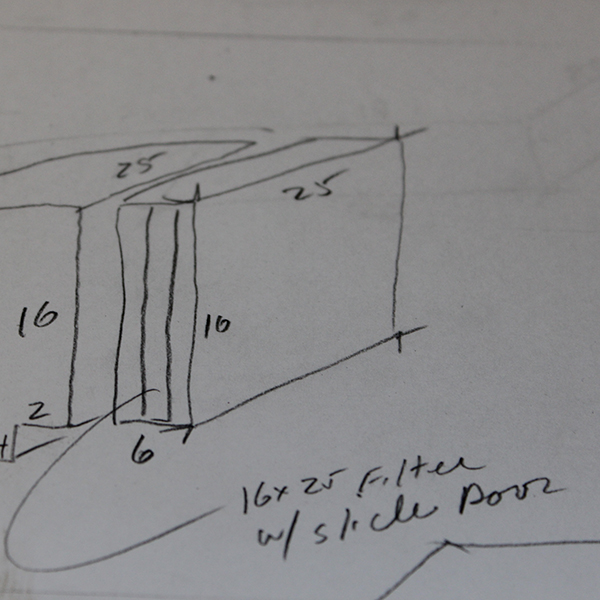 25
25
16
16
2
6
16x25 Filter
w/ slide Door